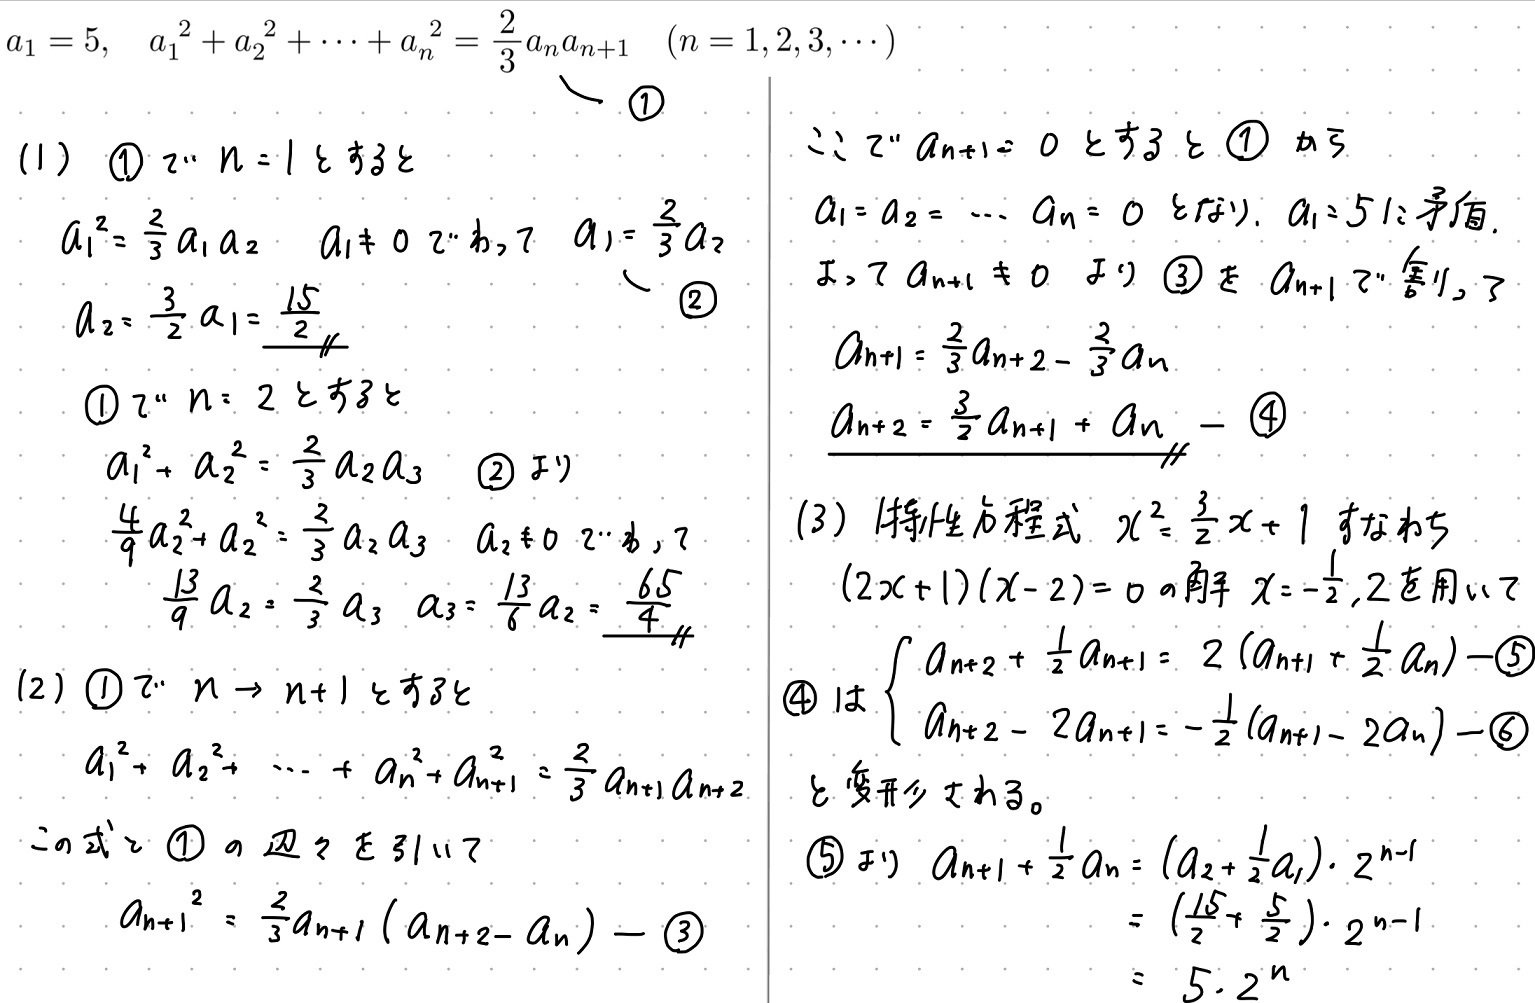 a₁ = 5, a₁² + a₂² + ⋯ + aₙ² = 2/3 aₙaₙ₊₁ (n = 1, 2, 3, ⋯)
①
(1) ①で n = 1 とすると
a₁² = 2/3 a₁a₂ a₁ ≠ 0 でわって a₁ = 2/3 a₂
②
a₂ = 3/2 a₁ = 15/2
①で n = 2 とすると
a₁² + a₂² = 2/3 a₂a₃ ②より
4/9 a₂² + a₂² = 2/3 a₂a₃ a₂ ≠ 0 でわって
13/9 a₂ = 2/3 a₃ a₃ = 13/6 a₂ = 65/4
(2) ①で n → n+1 とすると
a₁² + a₂² + ⋯ + aₙ² + aₙ₊₁² = 2/3 aₙ₊₁aₙ₊₂
この式と①の辺々を引いて
aₙ₊₁² = 2/3 aₙ₊₁(aₙ₊₂ − aₙ) — ③
ここで aₙ₊₁ = 0 とすると①から
a₁ = a₂ = ⋯ aₙ = 0 となり. a₁ = 5 に矛盾.
よって aₙ₊₁ ≠ 0 より ③を aₙ₊₁ で割って
aₙ₊₁ = 2/3 aₙ₊₂ − 2/3 aₙ
aₙ₊₂ = 3/2 aₙ₊₁ + aₙ — ④
(3) 特性方程式 x² = 3/2 x + 1 すなわち
(2x+1)(x−2) = 0 の解 x = −1/2, 2 を用いて
aₙ₊₂ + 1/2 aₙ₊₁ = 2(aₙ₊₁ + 1/2 aₙ) — ⑤
④は
aₙ₊₂ − 2aₙ₊₁ = −1/2(aₙ₊₁ − 2aₙ) — ⑥
と変形される。
⑤より aₙ₊₁ + 1/2 aₙ = (a₂ + 1/2 a₁)・2ⁿ⁻¹
= (15/2 + 5/2)・2ⁿ⁻¹
= 5・2ⁿ